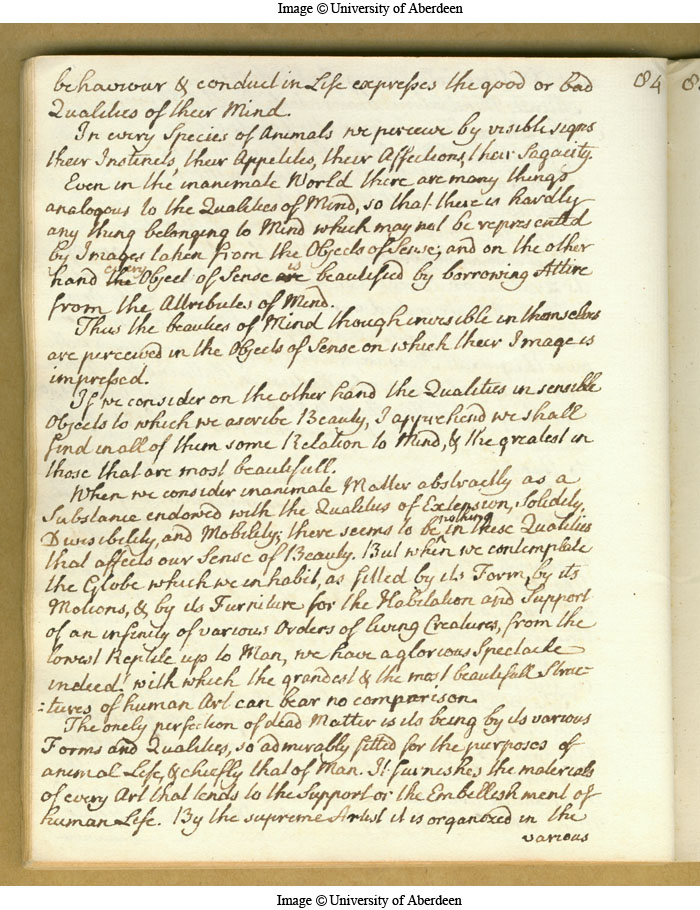 Image © University of Aberdeen
84
behaviour & conduct in Life expresses the good or bad
Qualities of their Mind.
In every Species of Animals we perceive by visible signs
their Instincts, their Appetites, their Affections, their Sagacity.
Even in the inanimate World there are many things
analogous to the Qualities of Mind, so that there is hardly
any thing belonging to Mind which may not be represented
by Images taken from the Objects of Sense; and on the other
hand the every Object of Sense are is beautified by borrowing Attire
from the Attributes of Mind.
Thus the beauties of Mind though invisible in themselves
are perceived in the Objects of Sense on which their Image is
impressed.
If we consider on the other hand the Qualities in sensible
Objects to which we ascribe Beauty, I apprehend we shall
find in all of them some Relation to Mind, & the greatest in
those that are most beautifull.
When we consider inanimate Matter abstractly as a
Substance endowed with the Qualities of Extension, Solidity,
Divisibility, and Mobility; there seems to be nothing in these Qualities
that affects our Sense of Beauty. But when we contemplate
the Globe which we inhabit, as fitted by its Form, by its
Motions, & by its Furniture for the Habitation and Support
of an infinity of various Orders of living Creatures, from the
lowest Reptile up to Man, we have a glorious Spectacle
indeed! with which the grandest & the most beautifull Struc-
:tures of human Art can bear no comparison.
The onely perfection of dead Matter is its being by its various
Forms and Qualities, so admirably fitted for the purposes of
animal Life, & chiefly that of Man. It furnishes the materials
of every Art that tends to the Support or the Embellishment of
human Life. By the supreme Artist it is organized in the
various
Image © University of Aberdeen